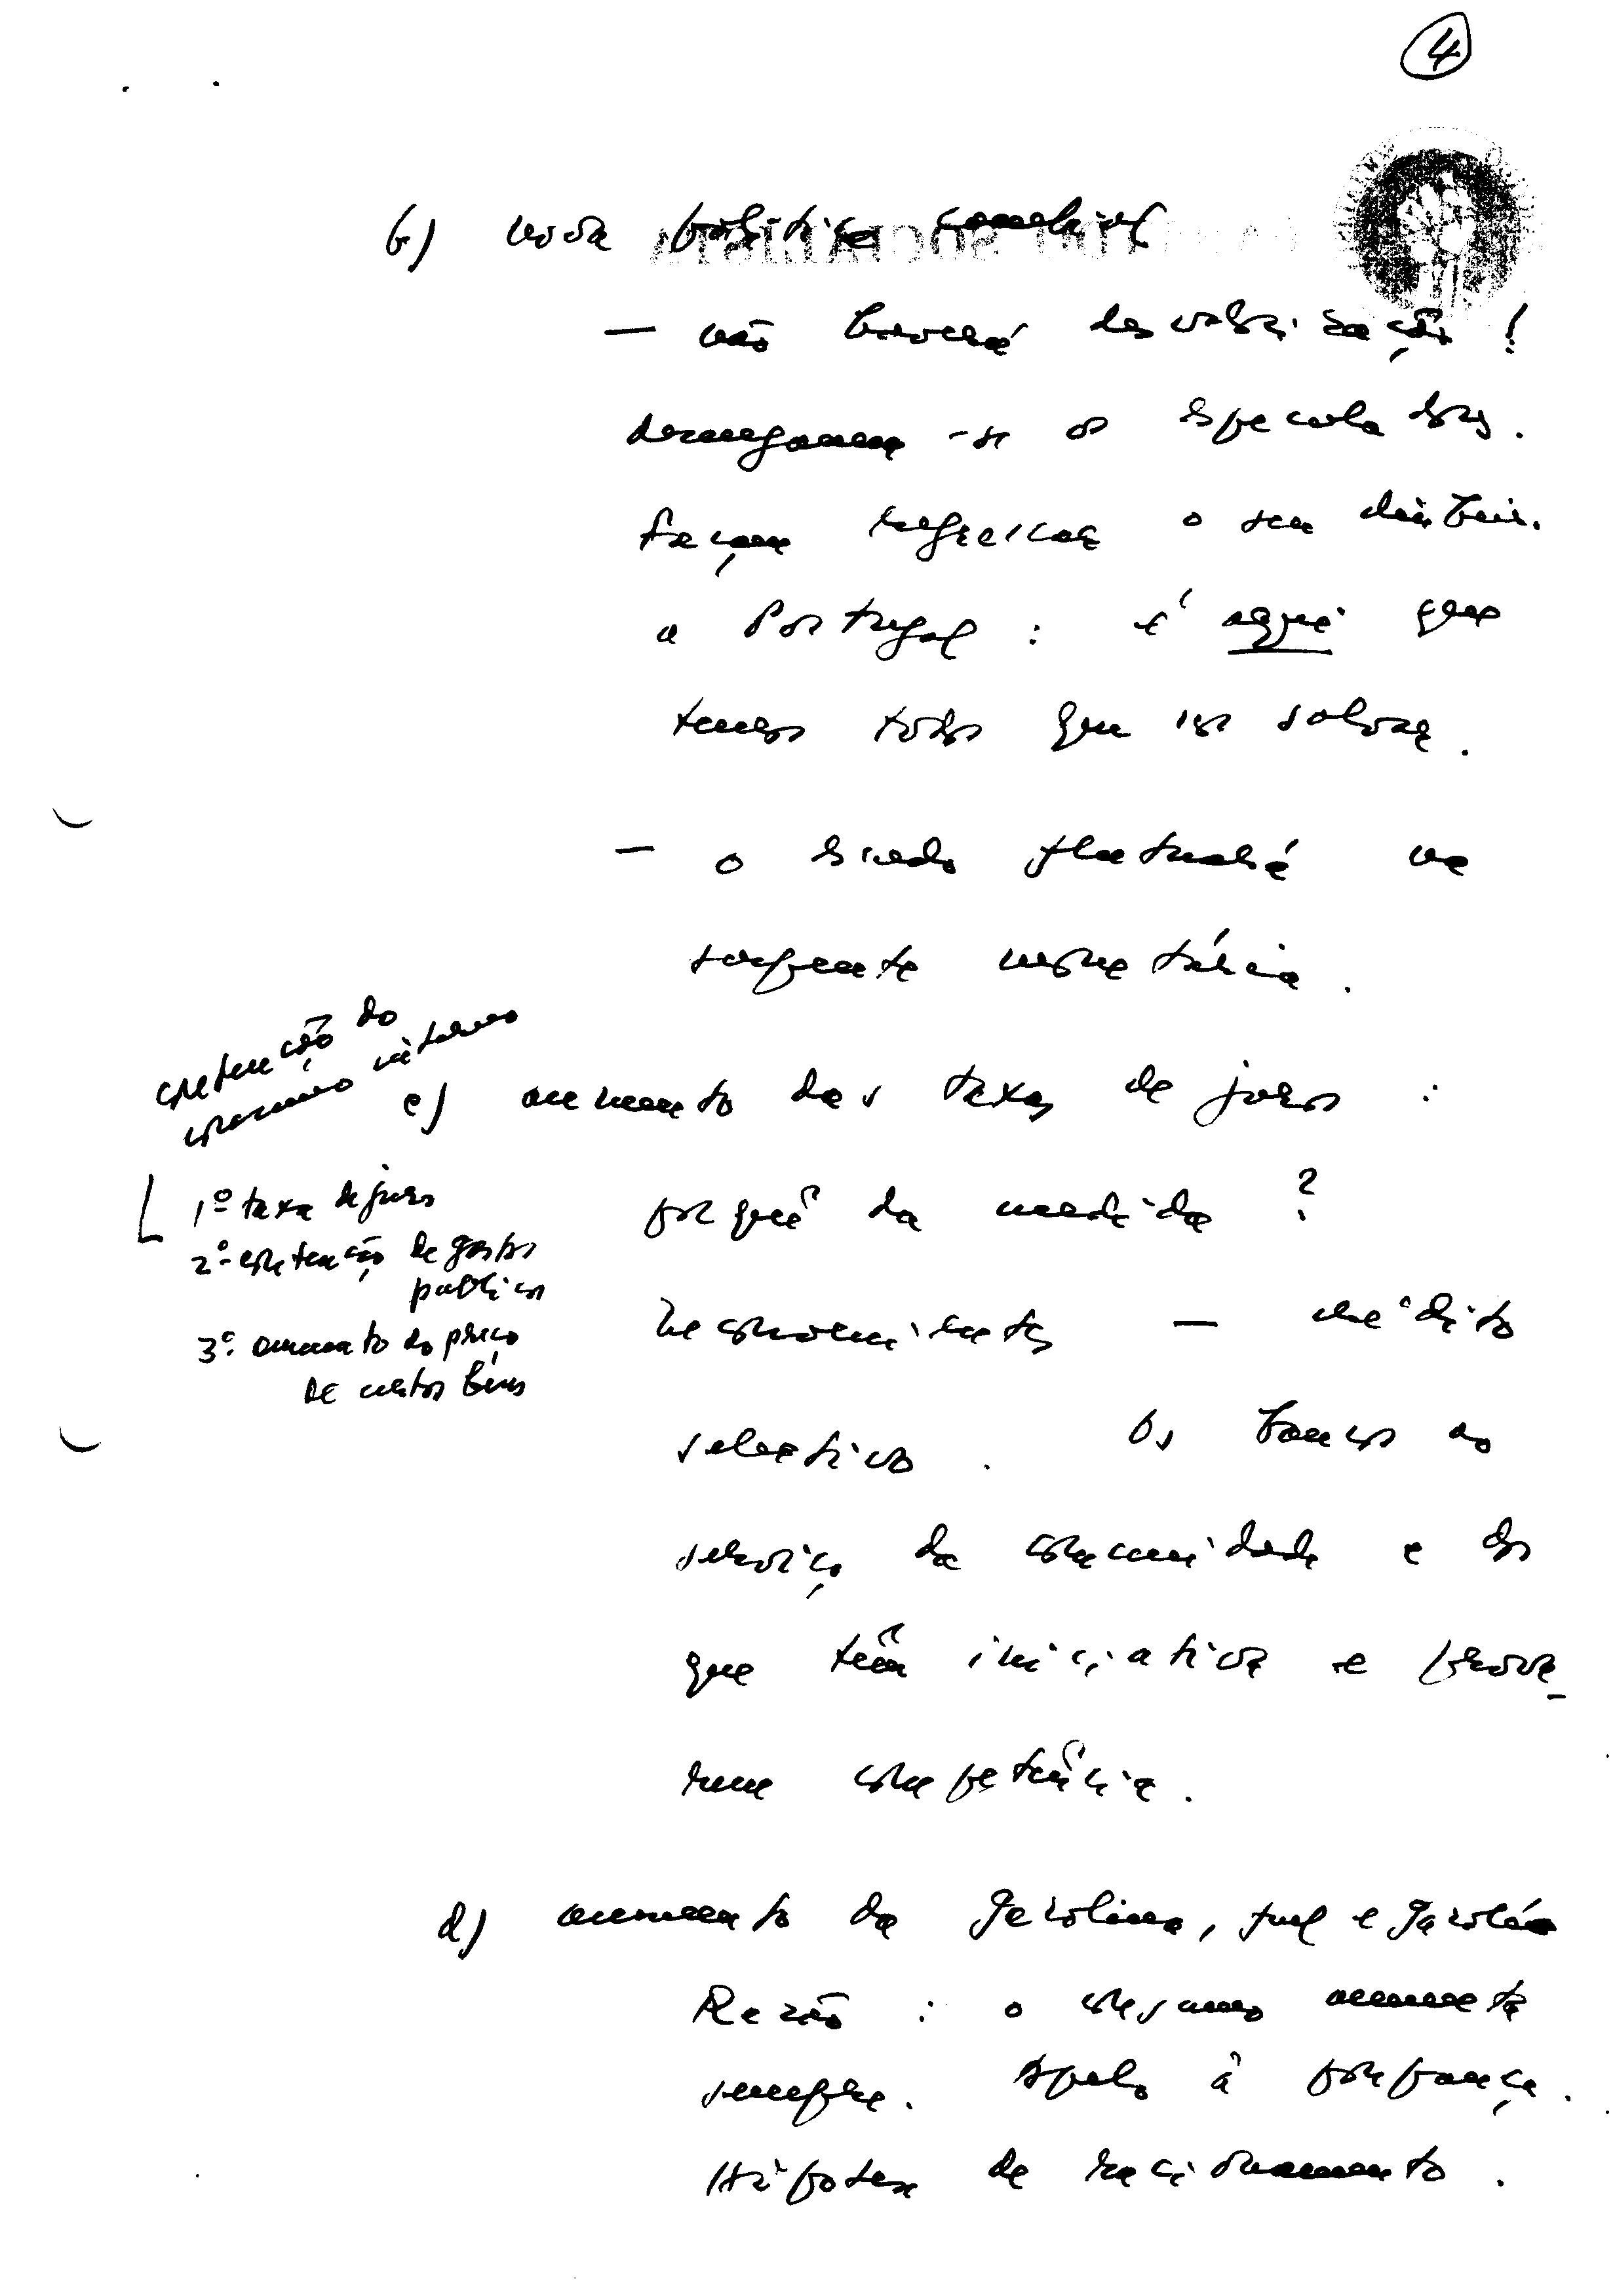 4
b) nova política cambial
— não haverá desvalorização!
desenganem-se os especuladores.
Façam regressar o seu dinheiro
a Portugal: é aqui que
temos todos que nos salvar.
— o escudo flutuará na
serpente monetária.
contenção do
consumo interno
c) aumento das taxas de juros:
1º taxa de juro
2º contenção de gastos
publicos
3º aumento do preço
de certos bens
porquê da medida?
— crédito
selectivo. Os bancos ao
serviço da comunidade e dos
que têm iniciativa e prova-
rem competência.
d) aumento da gasolina, fuel e gasóleo
Razão: o consumo aumenta
sempre. Apelo à poupança.
Hipótese de racionamento.